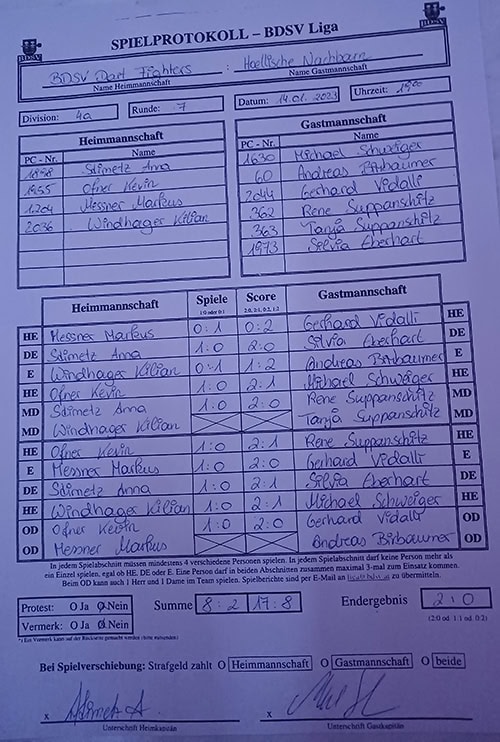 BDSV
BDSV
SPIELPROTOKOLL – BDSV Liga
BDSV Dart Fighters : Hoellische Nachbarn
Name Heimmannschaft Name Gastmannschaft
Division: 4a Runde: 7 Datum: 14.01.2023 Uhrzeit: 19⁰⁰
Heimmannschaft Gastmannschaft
PC - Nr. Name PC - Nr. Name
1898 Stimetz Anna 1630 Michael Schweiger
1955 Ofner Kevin 60 Andreas Birbaumer
1204 Messner Markus 2044 Gerhard Vidalli
2036 Windhager Kilian 362 Rene Suppanschitz
363 Tanja Suppanschitz
1973 Silvia Eberhart
Heimmannschaft Spiele Score Gastmannschaft
1:0 oder 0:1 2:0, 2:1, 0:2, 1:2
HE Messner Markus 0:1 0:2 Gerhard Vidalli HE
DE Stimetz Anna 1:0 2:0 Silvia Eberhart DE
E Windhager Kilian 0:1 1:2 Andreas Birbaumer E
HE Ofner Kevin 1:0 2:1 Michael Schweiger HE
MD Stimetz Anna 1:0 2:0 Rene Suppanschitz MD
MD Windhager Kilian Tanja Suppanschitz MD
HE Ofner Kevin 1:0 2:1 Rene Suppanschitz HE
E Messner Markus 1:0 2:0 Gerhard Vidalli E
DE Stimetz Anna 1:0 2:1 Silvia Eberhart DE
HE Windhager Kilian 1:0 2:1 Michael Schweiger HE
OD Ofner Kevin 1:0 2:0 Gerhard Vidalli OD
OD Messner Markus Andreas Birbaumer OD
In jedem Spielabschnitt müssen mindestens 4 verschiedene Personen spielen. In jedem Spielabschnitt darf keine Person mehr als
ein Einzel spielen, egal ob HE, DE oder E. Eine Person darf in beiden Abschnitten zusammen maximal 3-mal zum Einsatz kommen.
Beim OD kann auch 1 Herr und 1 Dame im Team spielen. Spielberichte sind per E-Mail an zu übermitteln.
Protest: O Ja Ø Nein Summe 8:2 17:8 Endergebnis 2:0
Vermerk: O Ja Ø Nein (2:0 od. 1:1 od. 0:2)
*) Ein Vermerk kann auf der Rückseite gemacht werden
Bei Spielverschiebung: Strafgeld zahlt O Heimmannschaft O Gastmannschaft O beide
x Stimetz A x
Unterschrift Heimkapitän Unterschrift Gastkapitän